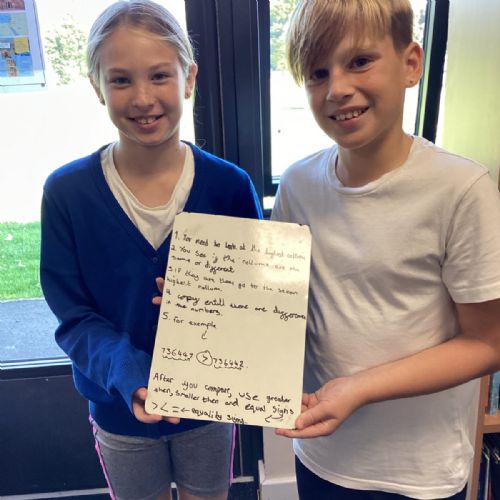 1. You need to look at the highest collum
2. You see if the collums are the
same or different
3. if they are then go to the secon
highest collum.
4. compay entill there are difference
in the numbers.
5. for example
736447 > 736442.
After you compair, use greater
then, smaller then and equal signs
> < = ← equality signs.